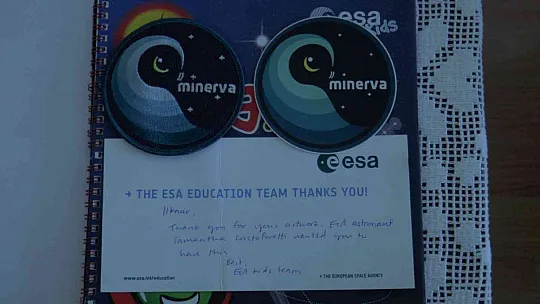 esa
kids
minerva
minerva
esa
→ THE ESA EDUCATION TEAM THANKS YOU!
Thank you for your artwork. ESA astronaut
Samantha Cristoforetti wanted you to
have this
Best,
ESA kids team
www.esa.int/education
→ THE EUROPEAN SPACE AGENCY